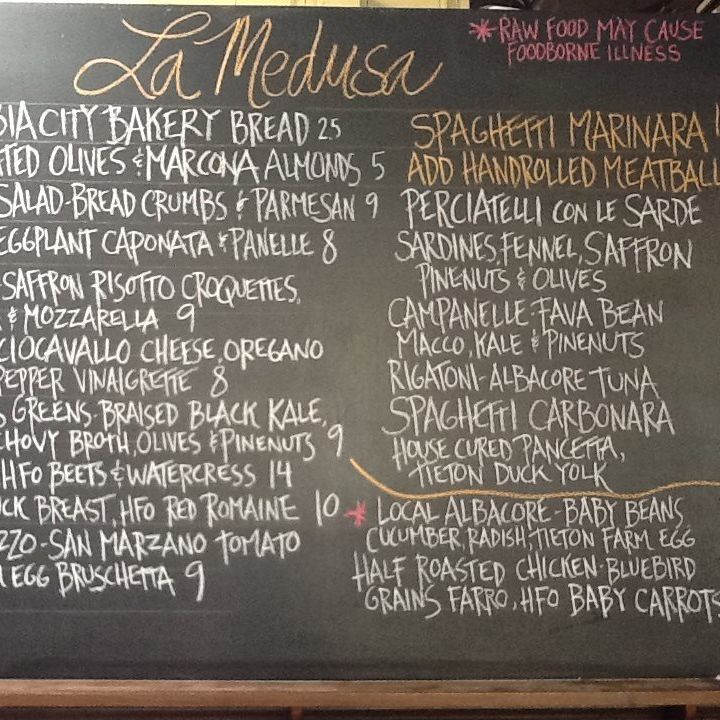 La Medusa
* RAW FOOD MAY CAUSE
FOODBORNE ILLNESS
CITY BAKERY BREAD 25
OLIVES & MARCONA ALMONDS 5
SALAD-BREAD CRUMBS & PARMESAN 9
EGGPLANT CAPONATA & PANELLE 8
-SAFFRON RISOTTO CROQUETTES,
& MOZZARELLA 9
CIOCAVALLO CHEESE, OREGANO
PEPPER VINAIGRETTE 8
GREENS-BRAISED BLACK KALE,
CHOVY BROTH, OLIVES & PINENUTS 9
HFO BEETS & WATERCRESS 14
CK BREAST, HFO RED ROMAINE 10
ZZO-SAN MARZANO TOMATO
EGG BRUSCHETTA 9
SPAGHETTI MARINARA
ADD HANDROLLED MEATBALL
PERCIATELLI CON LE SARDE
SARDINES, FENNEL, SAFFRON
PINENUTS & OLIVES
CAMPANELLE-FAVA BEAN
MACCO, KALE & PINENUTS
RIGATONI-ALBACORE TUNA
SPAGHETTI CARBONARA
HOUSE CURED PANCETTA,
TIETON DUCK YOLK
* LOCAL ALBACORE-BABY BEANS
CUCUMBER, RADISH, TIETON FARM EGG
HALF ROASTED CHICKEN-BLUEBIRD
GRAINS FARRO, HFO BABY CARROTS